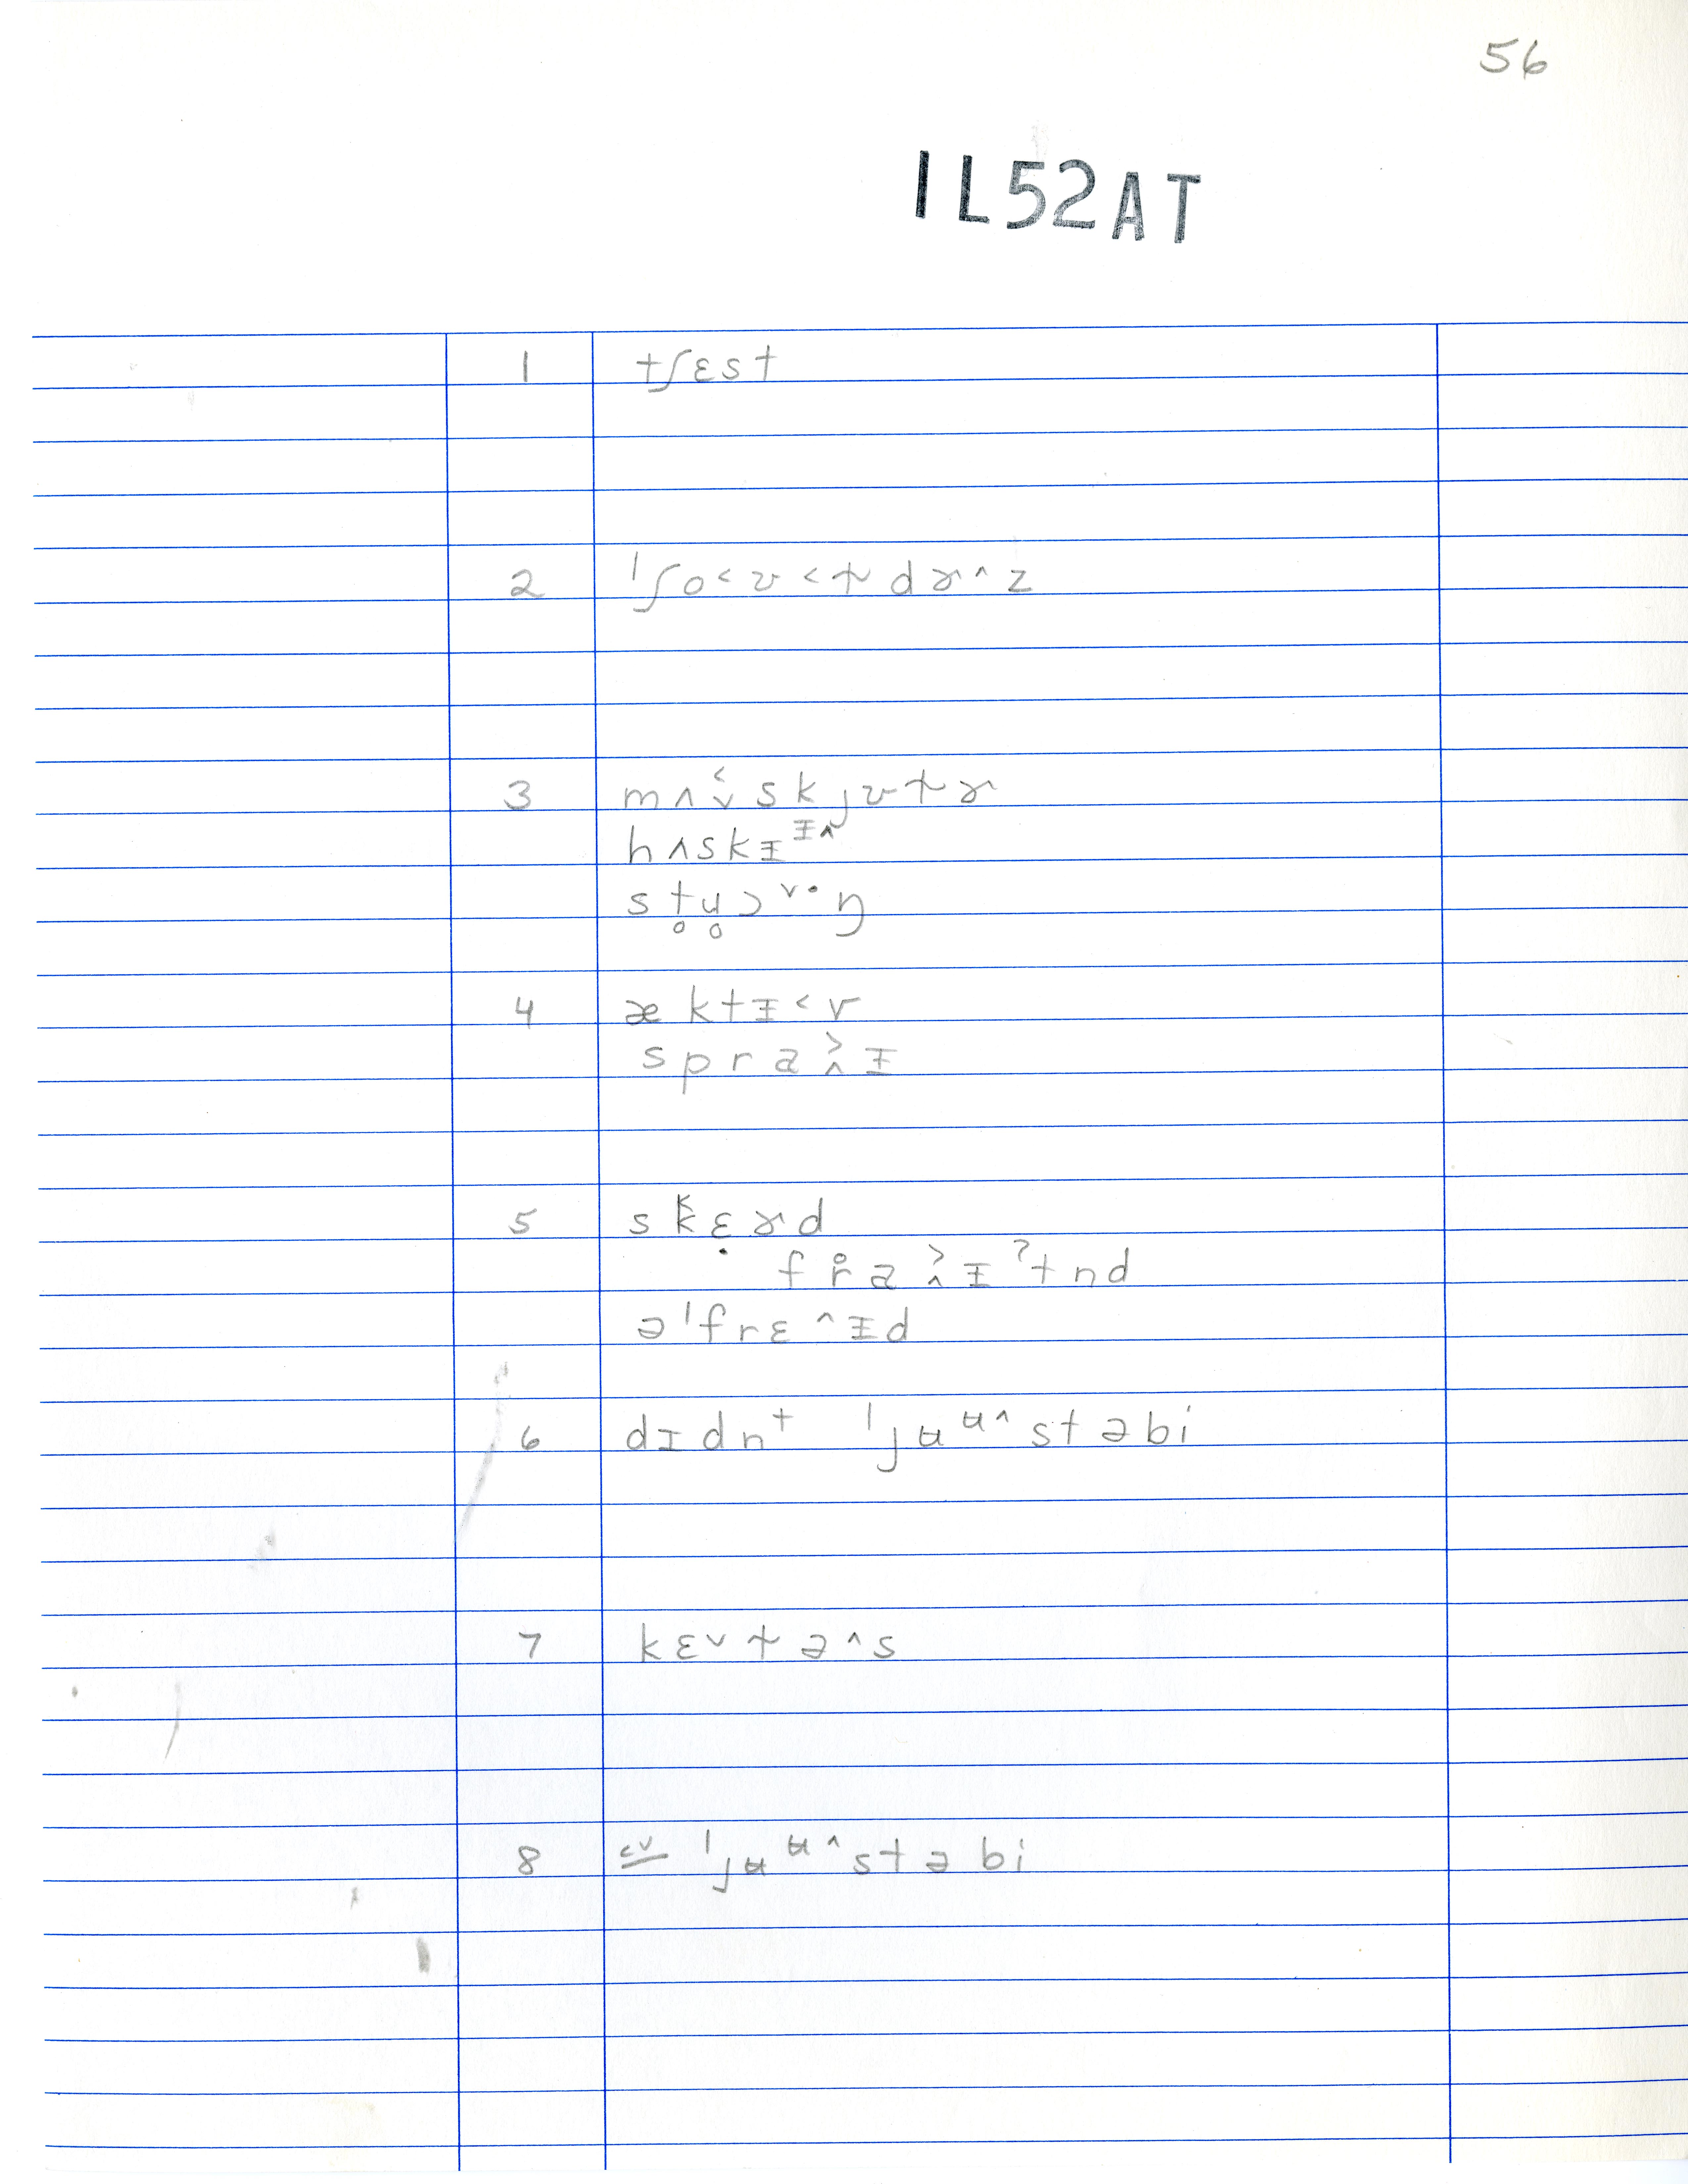 56
IL52AT
1 tʃɛst
2 ˈʃo˂ʊ˂t̴dɚ˄z
3 mʌ˂˅skjʊt̴ɚ
hʌskɨᶤ˄
st̥ɥ̥ɔ˅·ŋ
4 æktɨ˂v
spra˃˄ɨ
5 skᵏɛ̣ɚd
fr̊a˃˄ɨˀtnd
əˈfrɛ˄ɨd
6 dɪdnᵗ ˈjʉᶶ˄stəbi
7 kɛ˅t̴ə˄s
8 cv ˈjʉᶶ˄stəbi